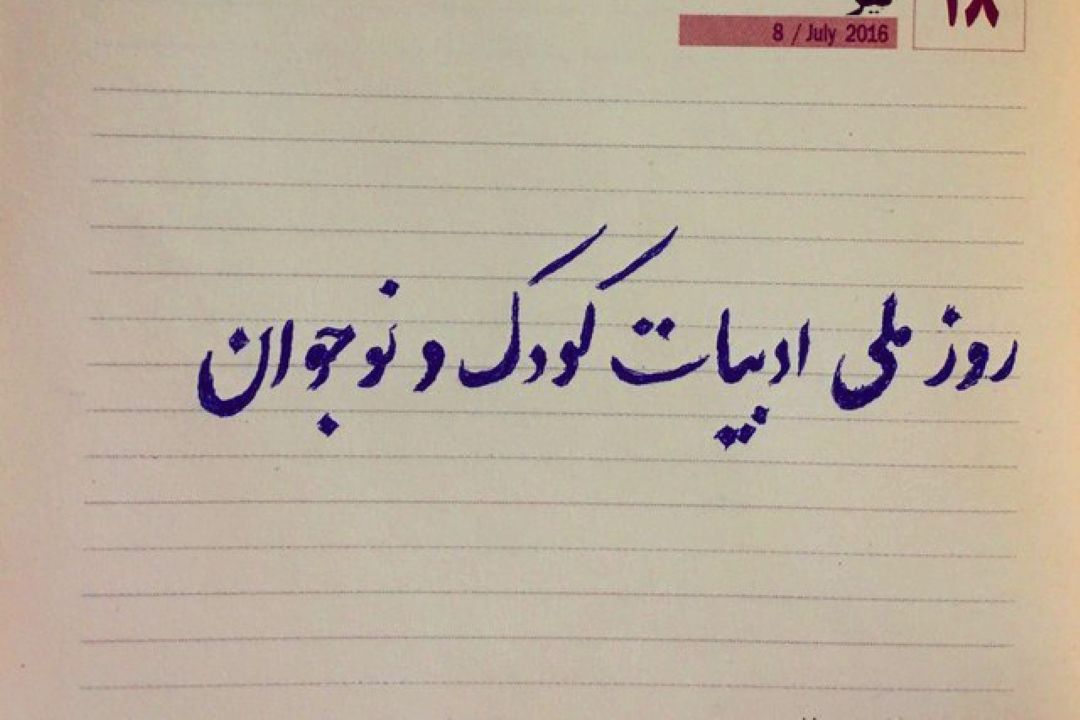 ۱۸
8 / July 2016
روز ملی ادبیات کودک و نوجوان